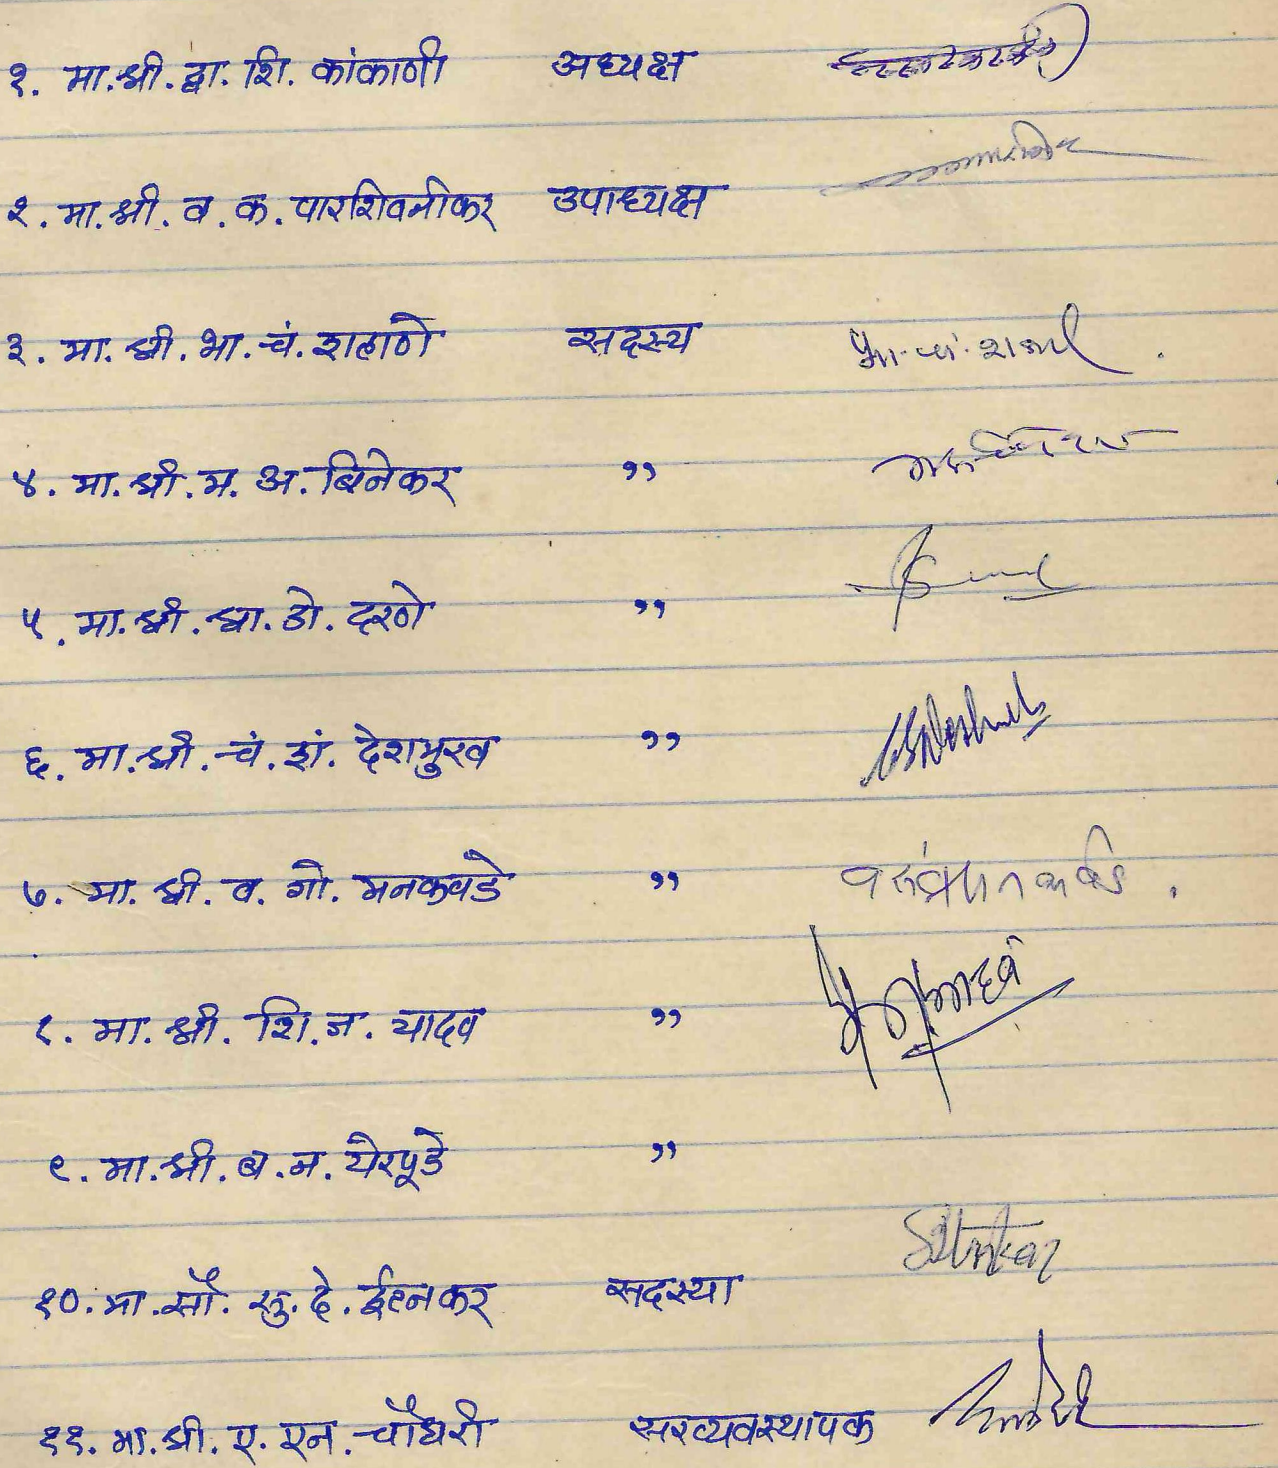 १. मा.श्री.द्वा. शि. कांकाणी अध्यक्ष
२. मा.श्री. व. क. पारशिवनीकर उपाध्यक्ष
३. मा. श्री. भा. चं. शहाणे सदस्य भा. चं. शहाणे.
४. मा. श्री. म. अ. बिनेकर ,,
५. मा. श्री. श्या. डो. दरणे ,,
६. मा. श्री. चं. शं. देशमुख ,,
७. मा. श्री. व. गो. मनकवडे ,,
८. मा. श्री. शि. ज. यादव ,,
९. मा. श्री. ब. म. येरपूडे ,,
१०. मा. सौ. सु. दे. ईटनकर सदस्या
११. मा. श्री. ए. एन. चौधरी सरव्यवस्थापक